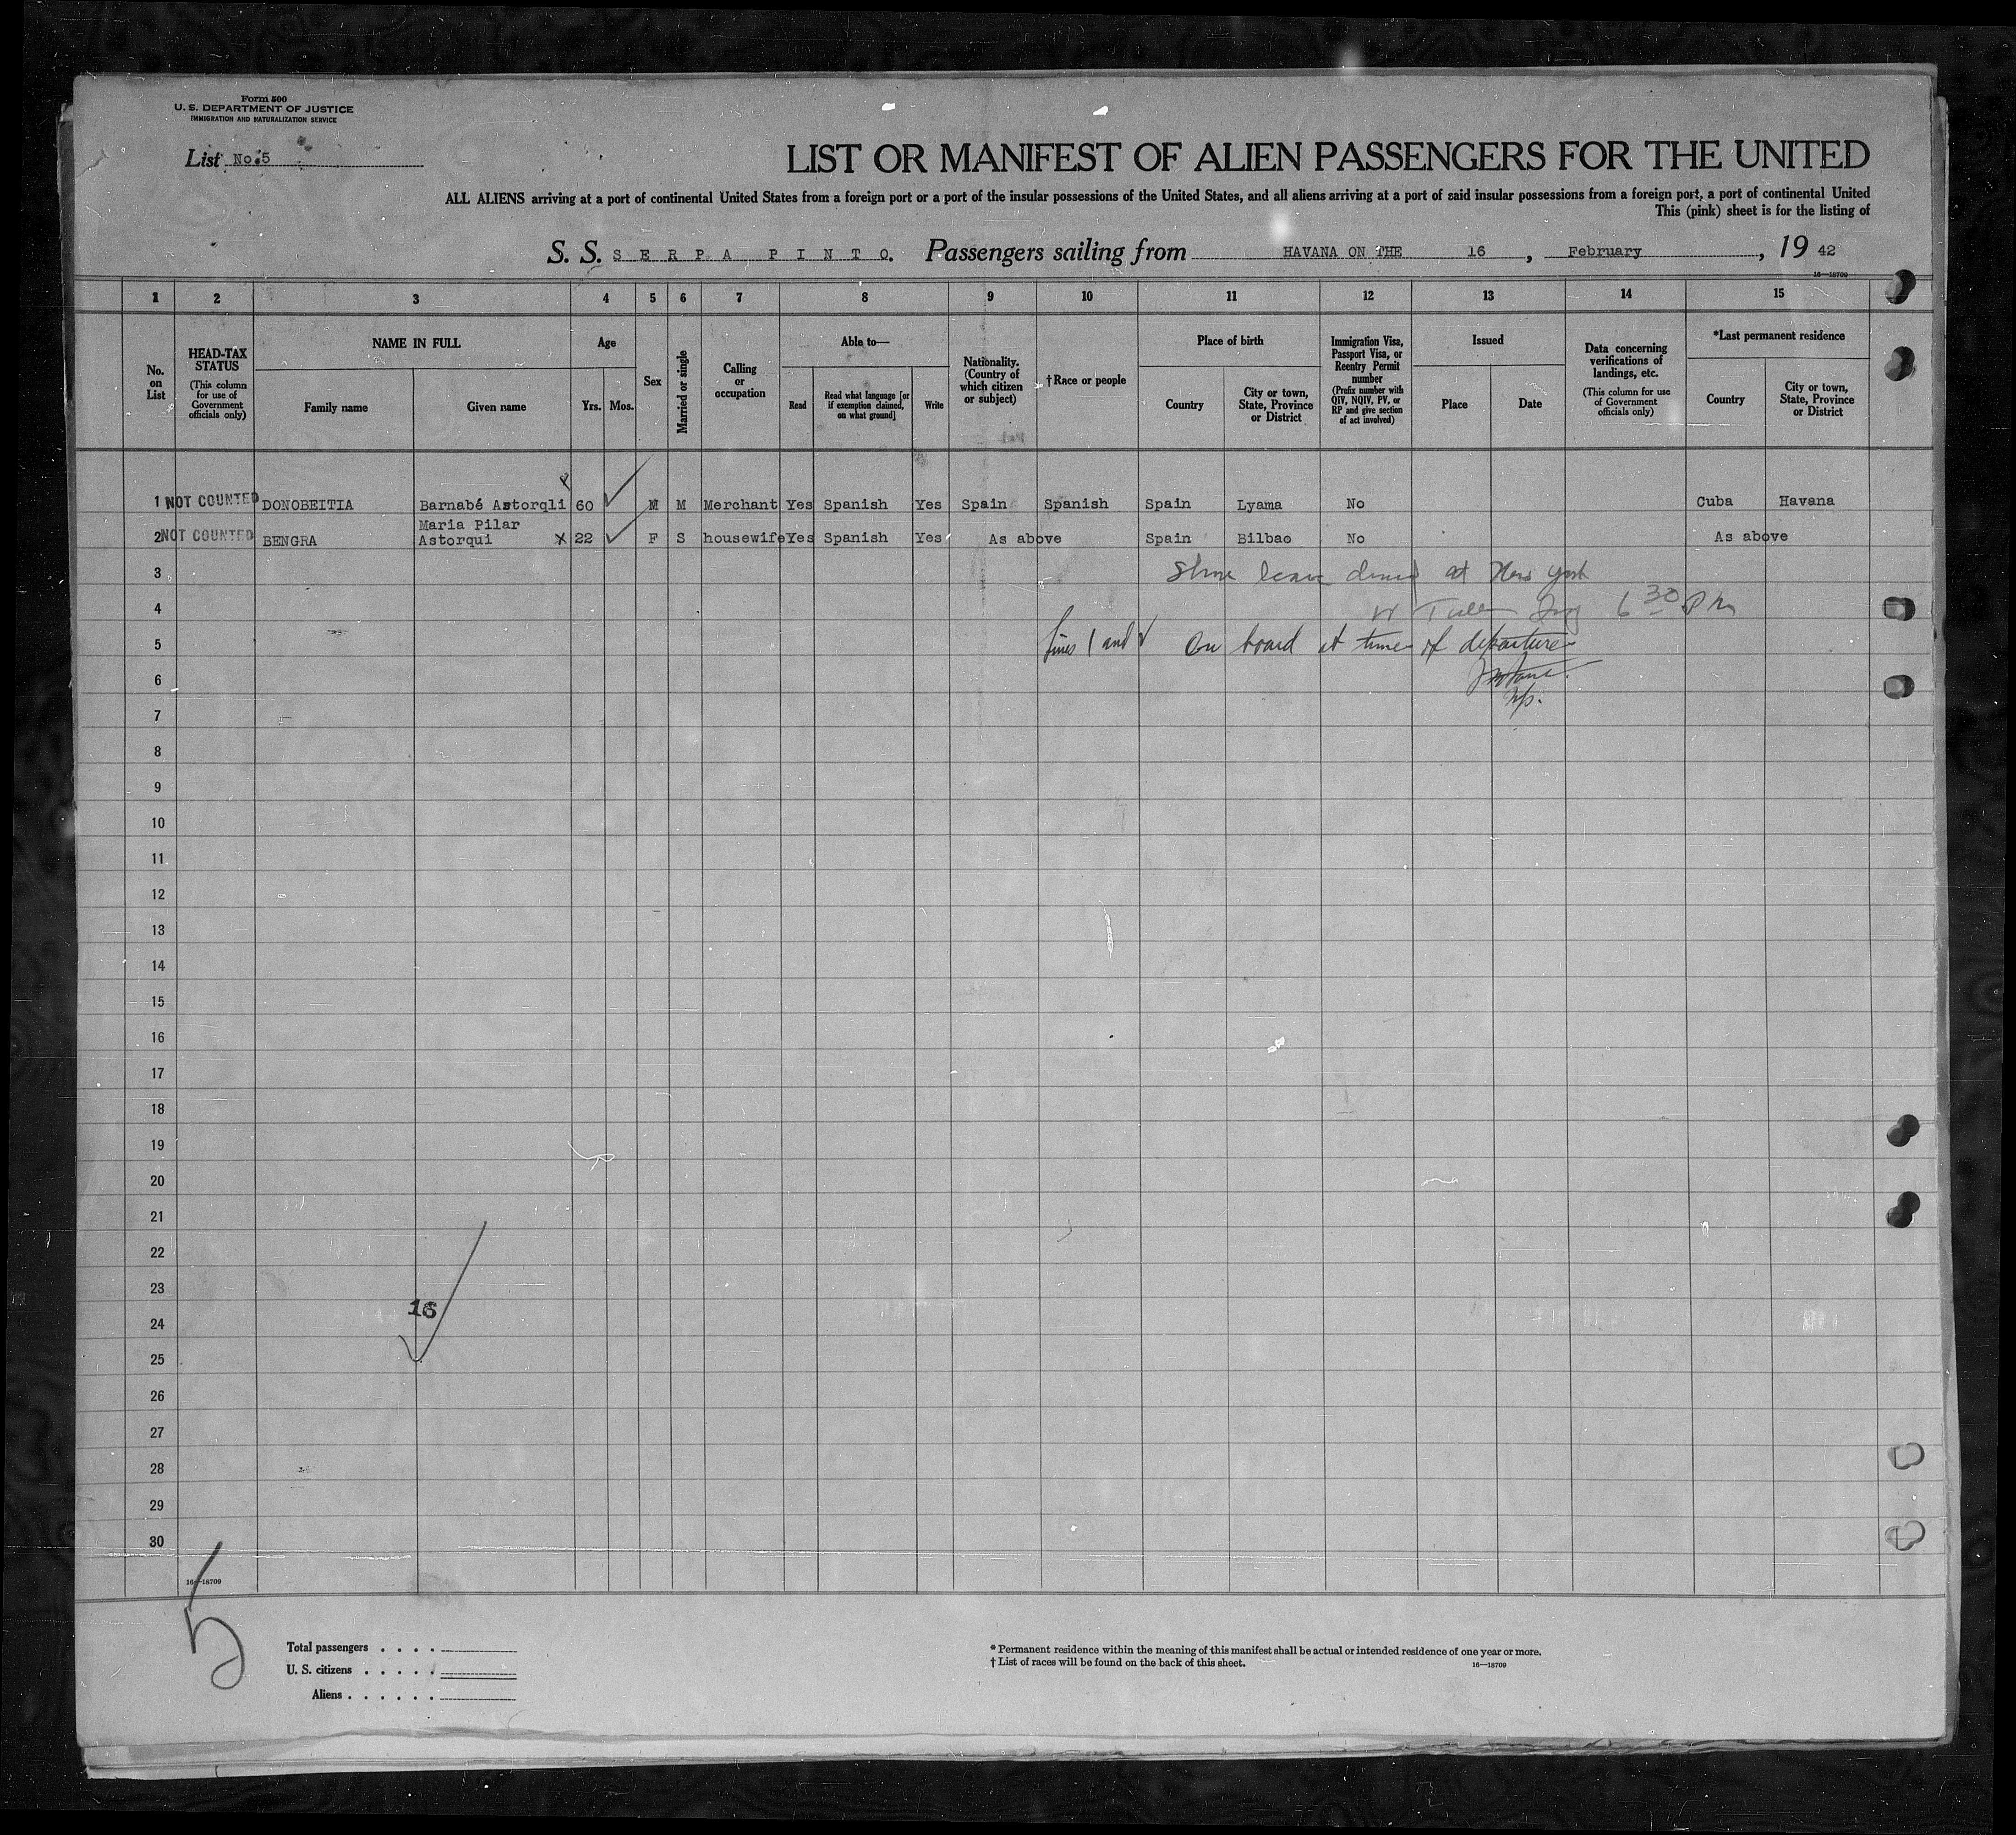 Form 500
U. S. DEPARTMENT OF JUSTICE
IMMIGRATION AND NATURALIZATION SERVICE
List No.5
LIST OR MANIFEST OF ALIEN PASSENGERS FOR THE UNITED
ALL ALIENS arriving at a port of continental United States from a foreign port or a port of the insular possessions of the United States, and all aliens arriving at a port of said insular possessions from a foreign port, a port of continental United
This (pink) sheet is for the listing of
S. S. SERPA PINTO. Passengers sailing from HAVANA ON THE 16, February, 19 42
16—18709
1 2 3 4 5 6 7 8 9 10 11 12 13 14 15
No. on List
HEAD-TAX STATUS
(This column for use of Government officials only)
NAME IN FULL
Family name
Given name
Age
Yrs. Mos.
Sex
Married or single
Calling or occupation
Able to—
Read
Read what language [or if exemption claimed, on what ground]
Write
Nationality. (Country of which citizen or subject)
†Race or people
Place of birth
Country
City or town, State, Province or District
Immigration Visa, Passport Visa, or Reentry Permit number
(Prefix number with QIV, NQIV, PV, or RP and give section of act involved)
Issued
Place
Date
Data concerning verifications of landings, etc.
(This column for use of Government officials only)
*Last permanent residence
Country
City or town, State, Province or District
1 NOT COUNTED DONOBEITIA Barnabé Astorqli 60 M M Merchant Yes Spanish Yes Spain Spanish Spain Lyama No Cuba Havana
Maria Pilar
2 NOT COUNTED BENGRA Astorqui X 22 F S housewife Yes Spanish Yes As above Spain Bilbao No As above
3 Shore leave denied at New York
4 6 30 PM
5 lines 1 and 2 On board at time of departure
6
7
8
9
10
11
12
13
14
15
16
17
18
19
20
21
22
23
16
24
25
26
27
28
29
30
16—18709
5
Total passengers . . . .
U. S. citizens . . . . .
Aliens . . . . . .
* Permanent residence within the meaning of this manifest shall be actual or intended residence of one year or more.
† List of races will be found on the back of this sheet.
16—18709